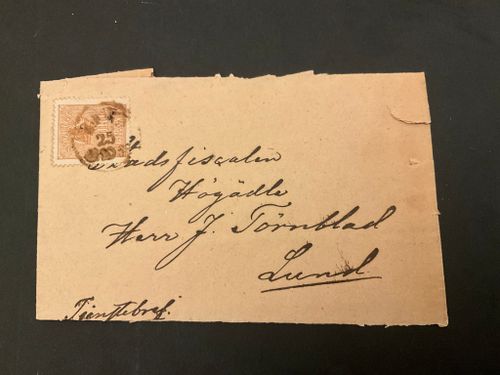 25
Stadsfiscalen
Högädle
Herr J. Törnblad
Lund
Tjenstebref.